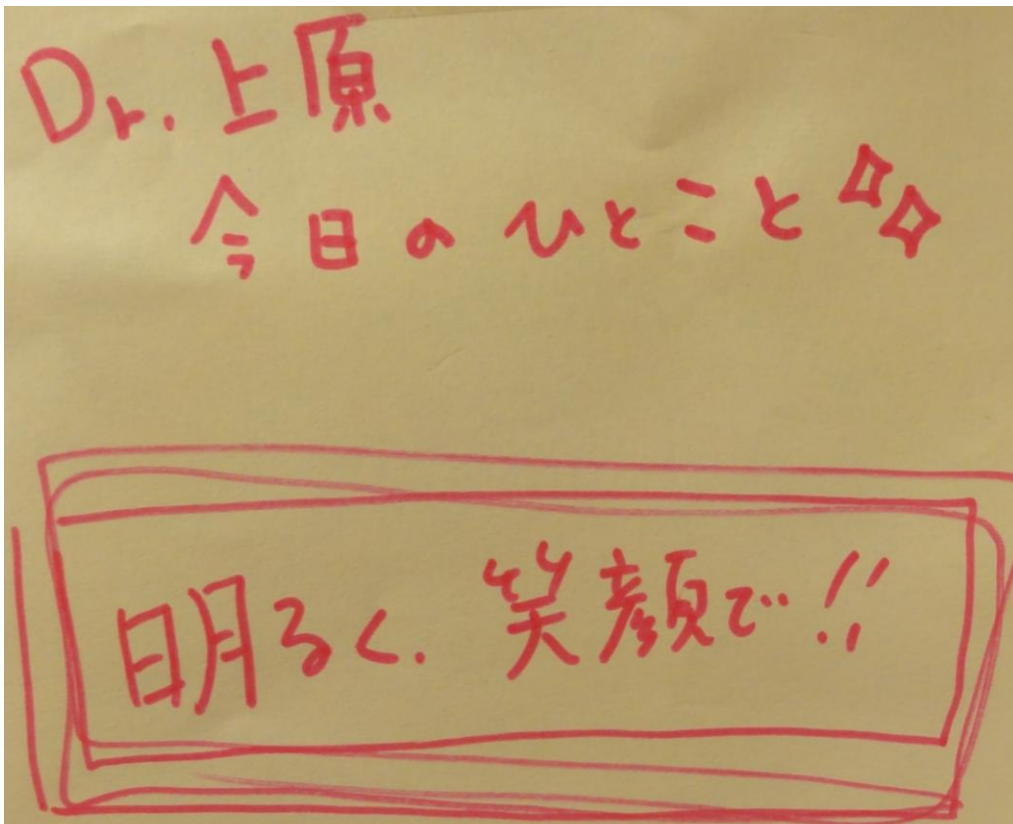 Dr. 上原
今日のひとこと
明るく、笑顔で!!